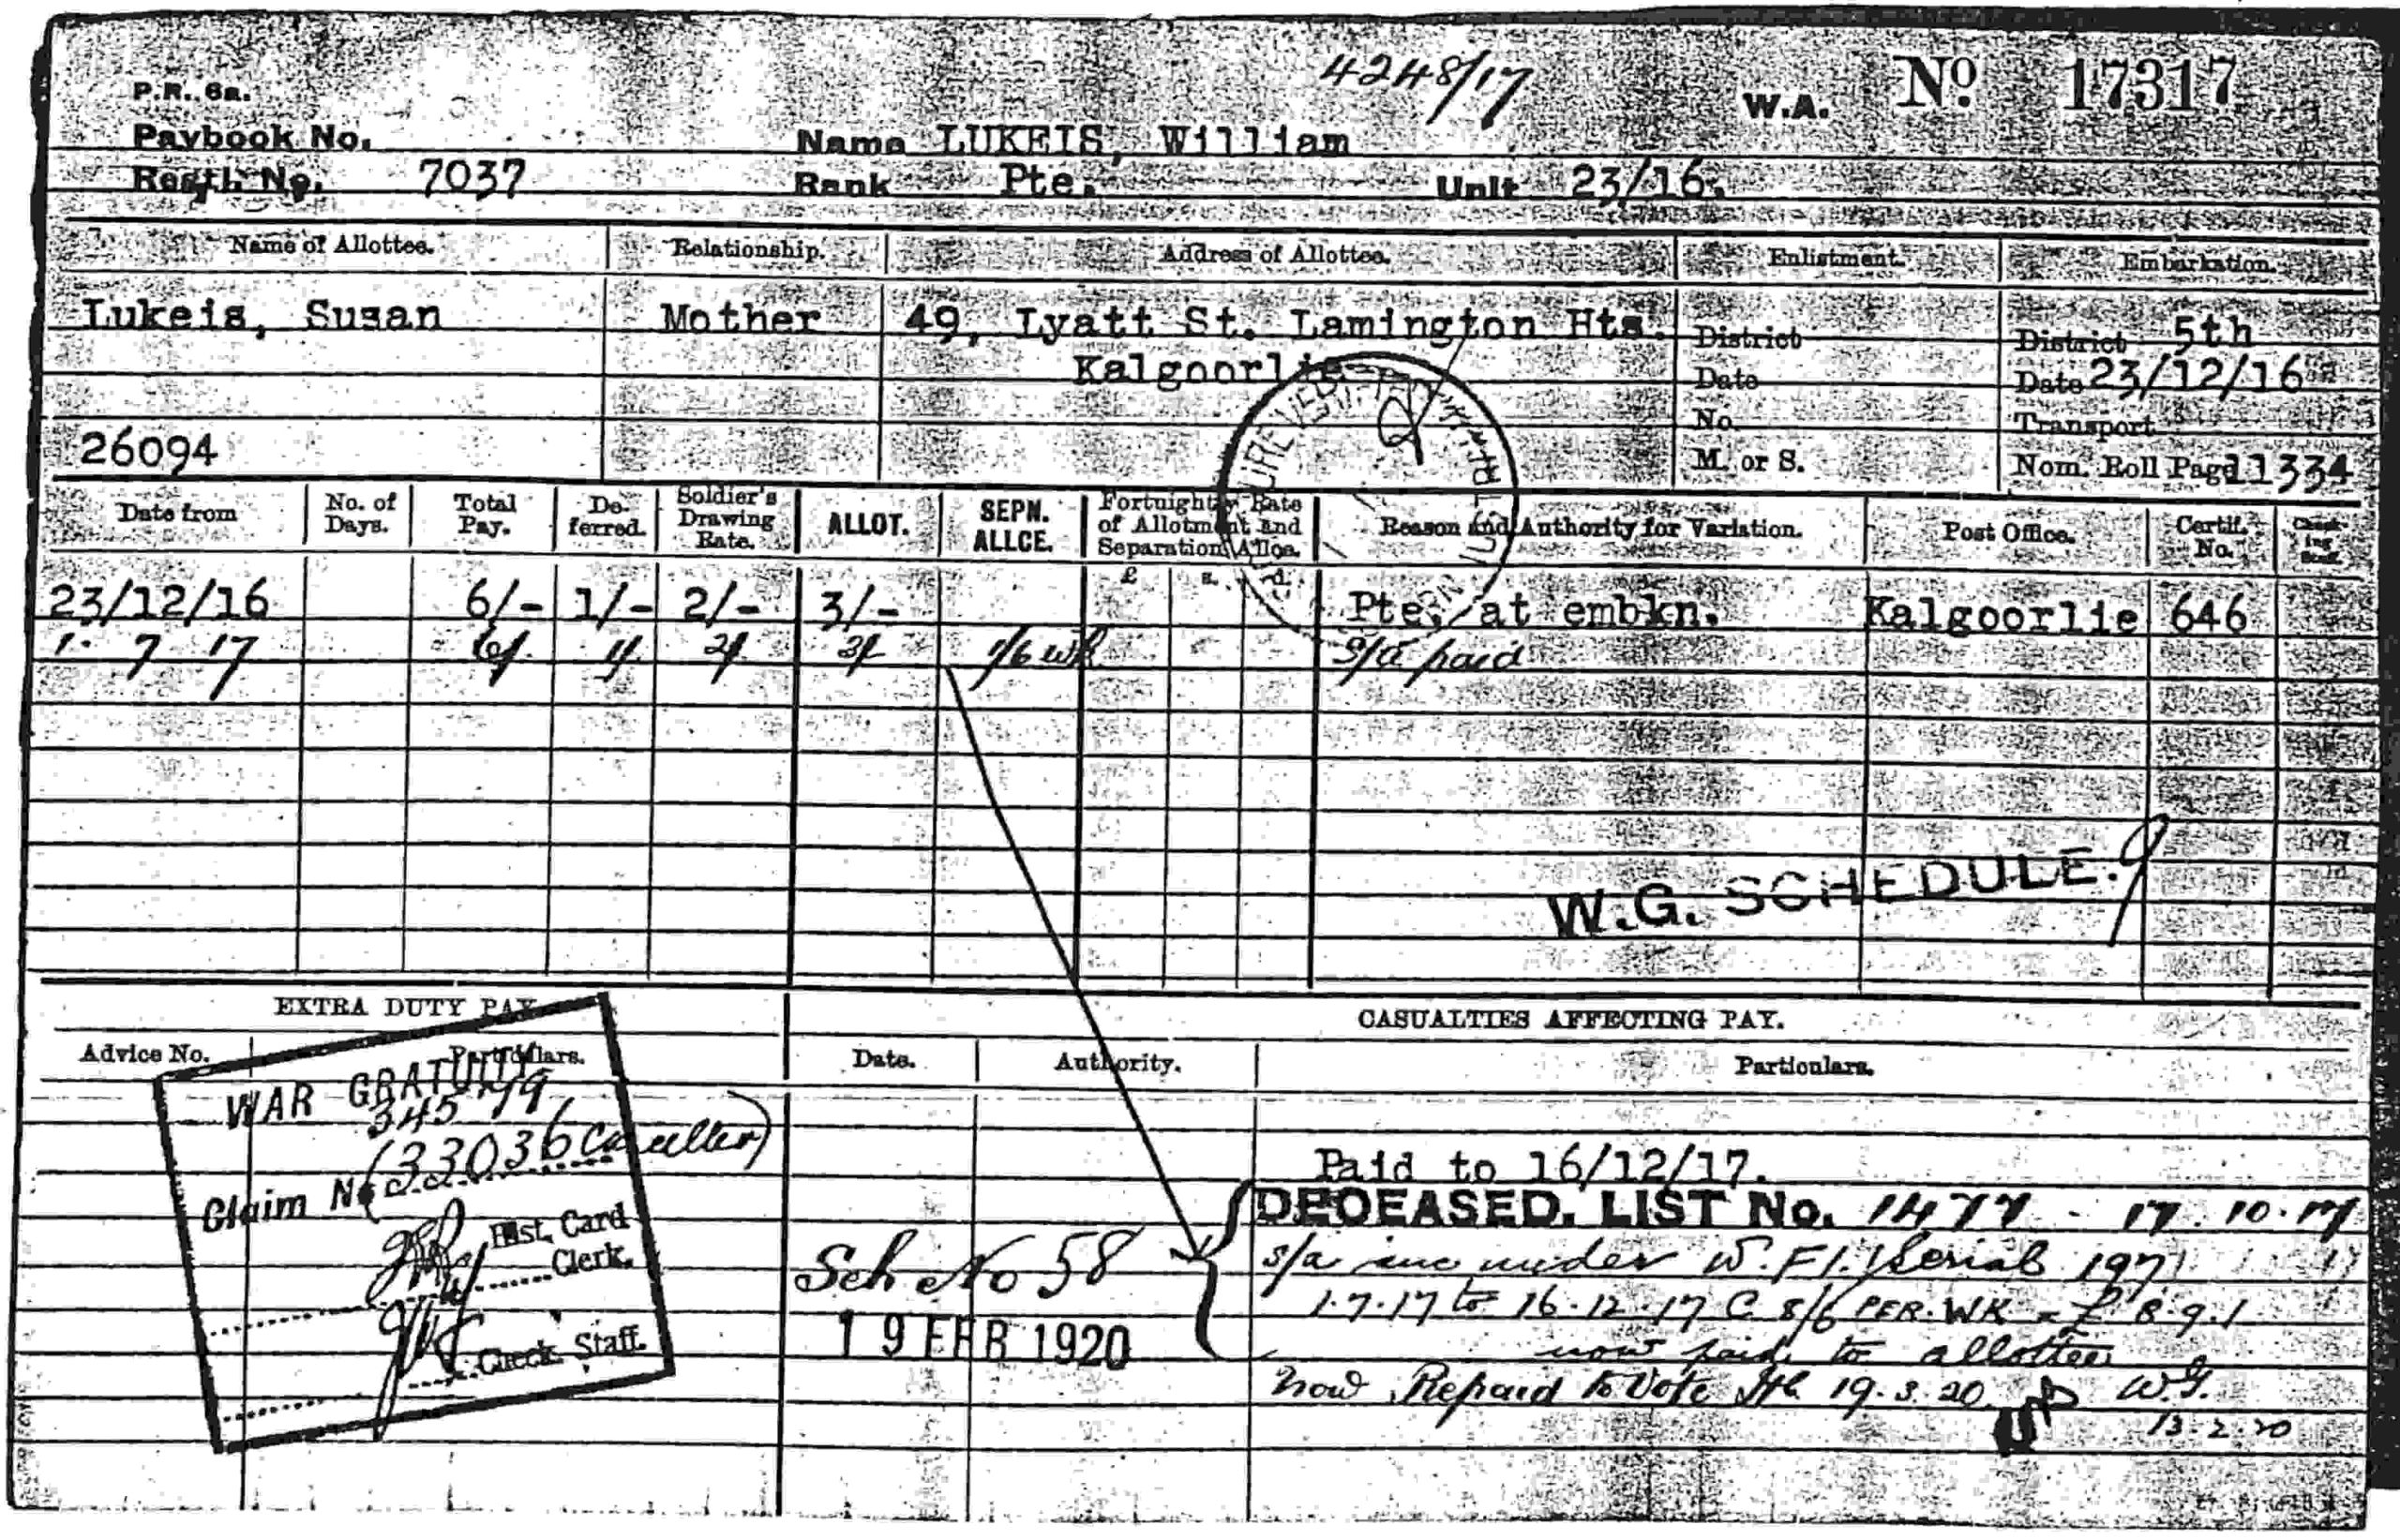 4248/17
P.R. 6a.
W.A. No. 17317
Paybook No.
Name LUKEIS, William
Regtl. No. 7037 Rank Pte. Unit 23/16.
Name of Allottee. Relationship. Address of Allottee. Enlistment. Embarkation.
Lukeis, Susan Mother 49, Lyatt St. Lamington Hts. District District 5th
Kalgoorlie Date Date 23/12/16
No. Transport
26094 M. or S. Nom. Roll Page 11334
Date from No. of Days. Total Pay. Deferred. Soldier's Drawing Rate. ALLOT. SEPN. ALLCE. Fortnightly Rate of Allotment and Separation Allce. Reason and Authority for Variation. Post Office. Certif. No. Checking Staff.
£ s. d.
23/12/16 6/- 1/- 2/- 3/- Pte. at embkn. Kalgoorlie 646
1. 7 17 6/ 1/ 2/ 3/ 1/6 wk s/a paid
W.G. SCHEDULE. 9
EXTRA DUTY PAY CASUALTIES AFFECTING PAY.
Advice No. Particulars. Date. Authority. Particulars.
WAR GRATUITY
34579
Claim No (33036
Hist. Card
Clerk.
Check Staff.
Paid to 16/12/17.
DECEASED. LIST No. 1477 - 17.10.17
Sch No 58
s/a under W.F1. Serial 197
1.7.17 to 16.12.17 @ 8/6 PER. WK = £ 8.9.1
19 FEB 1920
now paid to allottee
now Repaid to Vote 19.3.20 W.G.
13.2.20